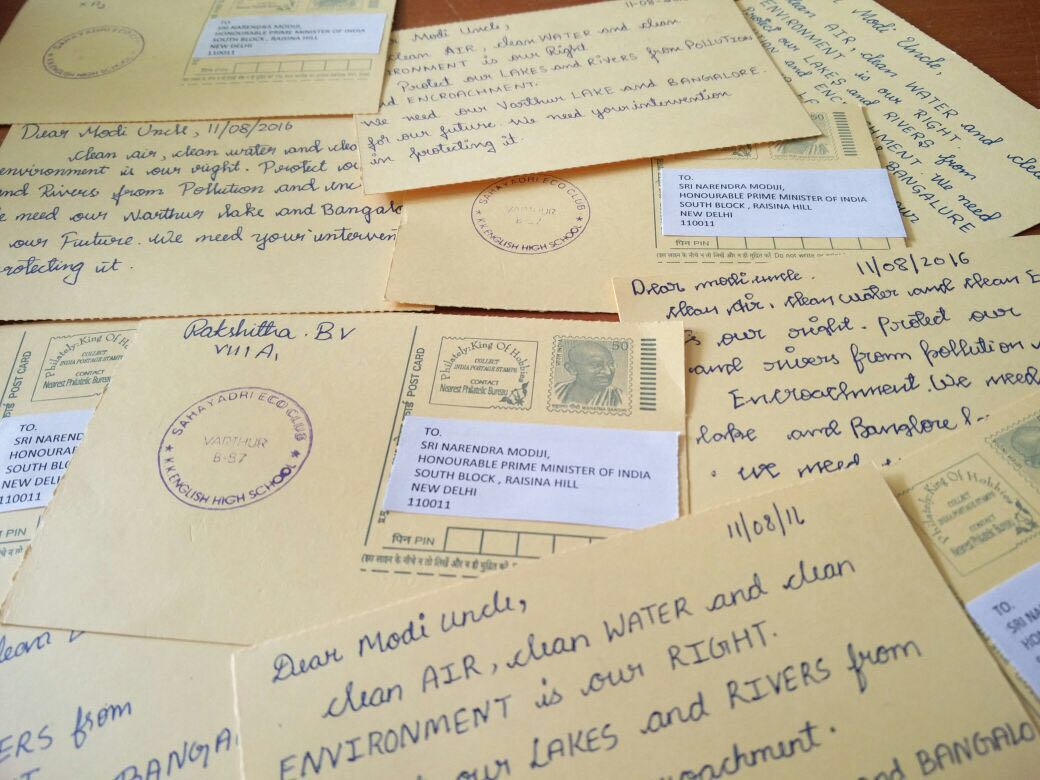 TO.
SRI NARENDRA MODIJI,
HONOURABLE PRIME MINISTER OF INDIA
SOUTH BLOCK, RAISINA HILL
NEW DELHI
110011
Modi Uncle,
clean AIR, clean WATER and clean
ENVIRONMENT is our Right.
Protect our LAKES and RIVERS from POLLUTION
ENCROACHMENT.
We need our Varthur LAKE and BANGALORE.
for our future. We need your intervention
in protecting it.
Modi Uncle,
clean AIR, clean WATER and clean
is our RIGHT.
Protect our LAKES and RIVERS from
We need
BANGALURE
our
Dear Modi Uncle, 11/08/2016
clean air, clean water and clea
environment is our right. Protect ou
and Rivers from Pollution and enc
We need our Varthur Lake and Bangalo
our Future. We need your interven
protecting it.
SAHAYADRI ECO CLUB
VARTHUR
B-87
K K ENGLISH HIGH SCHOOL
TO.
SRI NARENDRA MODIJI,
HONOURABLE PRIME MINISTER OF INDIA
SOUTH BLOCK , RAISINA HILL
NEW DELHI
110011
पिन PIN
Do not write or
Dear modi uncle. 11/08/2016
clean Air, clean water and clean E
is our right. Protect our
and rivers from pollution
Encroachment. We need
lake and Banglore
We need
Philately:King Of Ho
COLLECT
INDIA POSTAGE STAMPS
CONTACT
Nearest Philatelic Bureau
POST CARD
TO.
SRI NAREND
HONOURAB
SOUTH BLOC
NEW DELHI
110011
Rakshitha. B V
VIII A,
SAHAYADRI ECO CLUB
VARTHUR
B-87
K K ENGLISH HIGH SCHOOL
POST CARD
Philately:King Of Hobbies
COLLECT
INDIA POSTAGE STAMPS
CONTACT
Nearest Philatelic Bureau
50
महात्मा गांधी MAHATMA GANDHI
TO.
SRI NARENDRA MODIJI,
HONOURABLE PRIME MINISTER OF INDIA
SOUTH BLOCK , RAISINA HILL
NEW DELHI
110011
पिन PIN
(इस लाइन के नीचे न तो लिखें और न ही मुद्रित करें
Philately:King Of Hobbies
COLLECT
INDIA POSTAGE STAMPS
CONTACT
Nearest Philatelic Bureau
TO.
11/08/16
Dear Modi Uncle,
clean AIR, clean WATER and clean
ENVIRONMENT is our RIGHT.
our LAKES and RIVERS from
and BANGALO
ERS from
BANGA